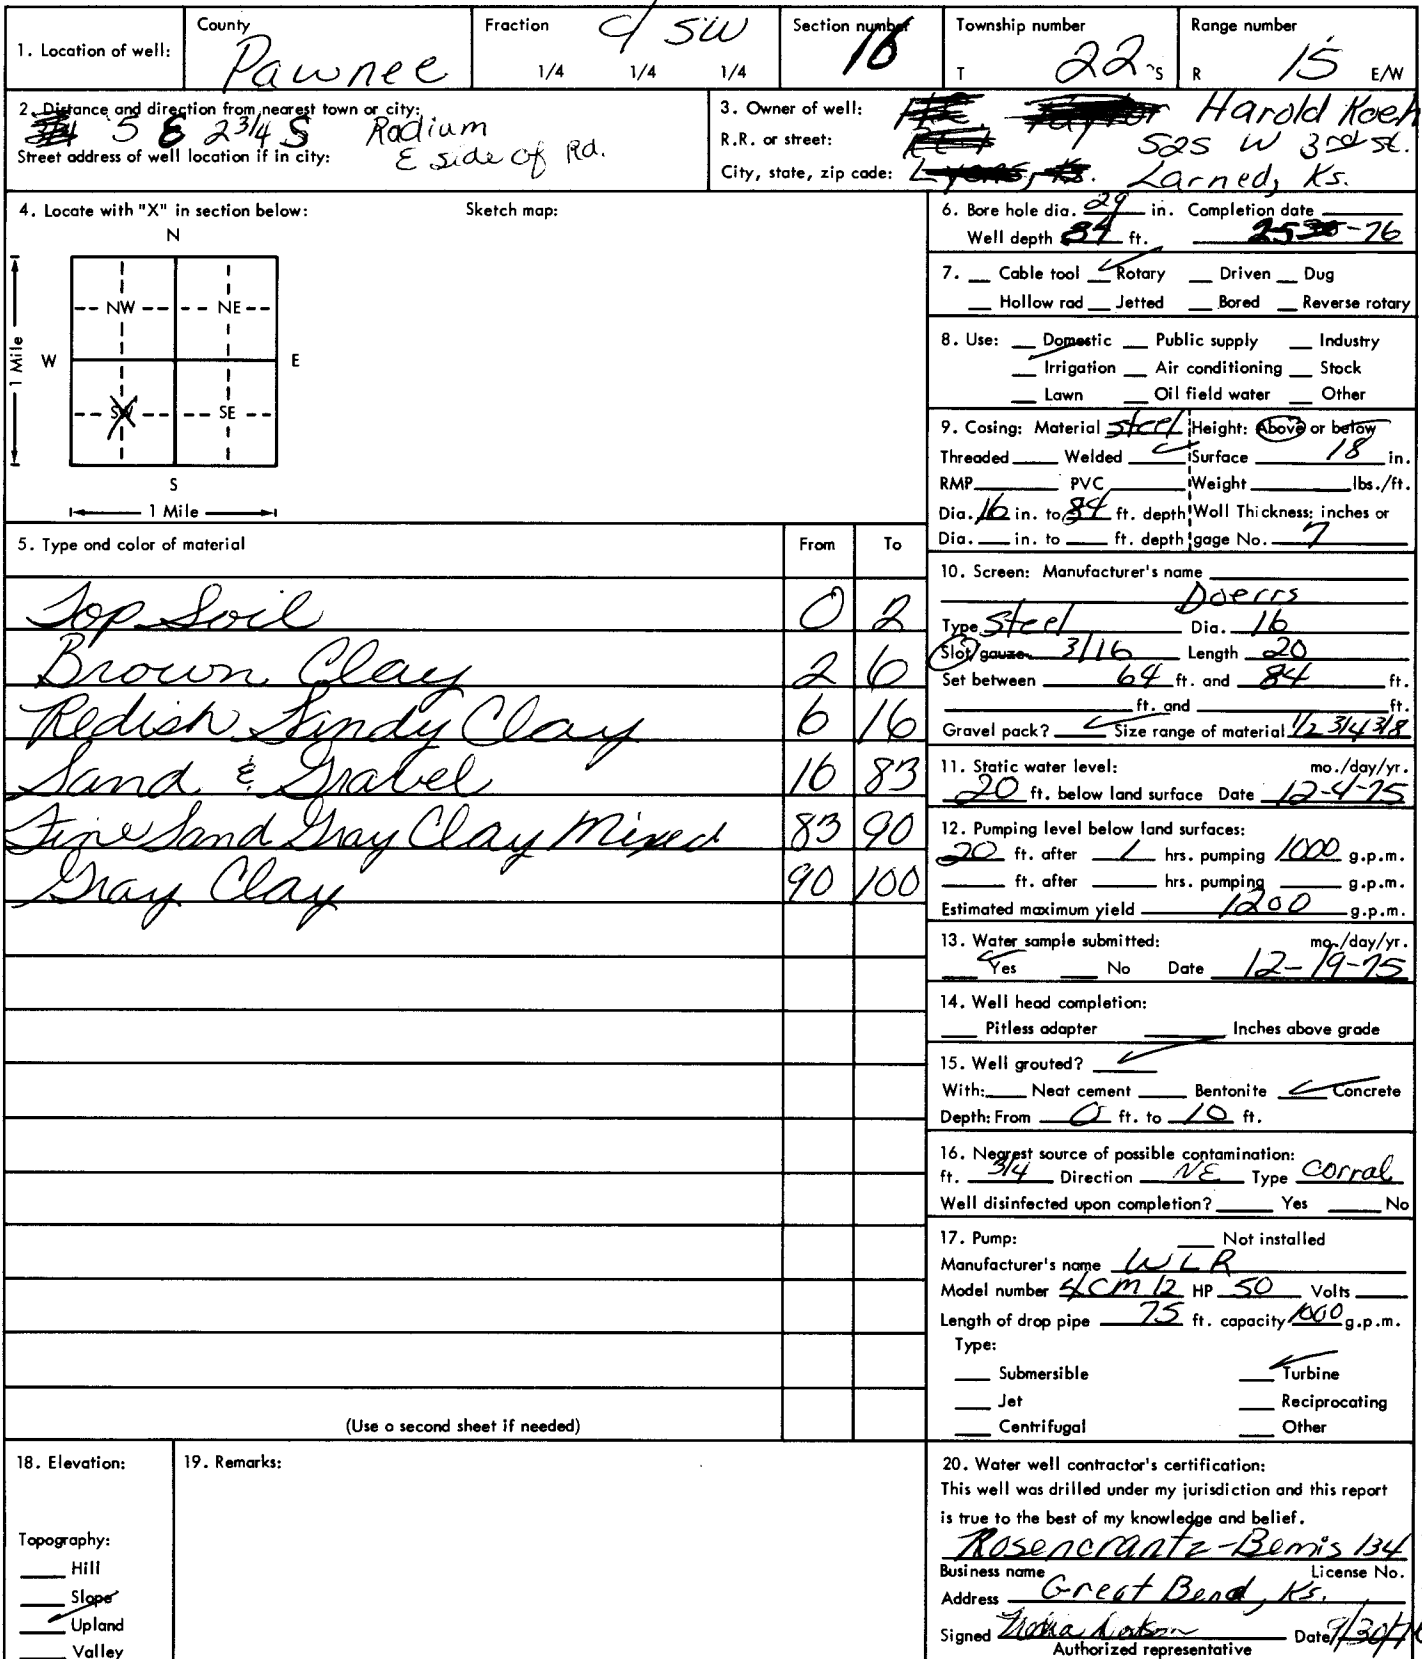 1. Location of well:
County
Pawnee
Fraction
C/ SW
1/4 1/4 1/4
Section number
16
Township number
T 22 S
Range number
R 15 E/W
2. Distance and direction from nearest town or city:
5 E 2 3/4 S Radium
Street address of well location if in city:
E side of Rd.
3. Owner of well: Harold Koeh
R.R. or street: 525 W 3rd St.
City, state, zip code: Lyons, Ks. Larned, Ks.
4. Locate with "X" in section below:
Sketch map:
N
NW NE
W E
1 Mile
SW SE
X
S
1 Mile
5. Type and color of material From To
Top Soil 0 2
Brown Clay 2 6
Redish Sandy Clay 6 16
Sand & Gravel 16 83
Fine Sand Gray Clay Mixed 83 90
Gray Clay 90 100
(Use a second sheet if needed)
6. Bore hole dia. 29 in. Completion date
Well depth 84 ft. -76
7. Cable tool ✓ Rotary Driven Dug
Hollow rad Jetted Bored Reverse rotary
8. Use: Domestic Public supply Industry
✓ Irrigation Air conditioning Stock
Lawn Oil field water Other
9. Casing: Material Steel Height: Above or below
Threaded Welded ✓ Surface 18 in.
RMP PVC Weight lbs./ft.
Dia. 16 in. to 84 ft. depth Wall Thickness: inches or
Dia. in. to ft. depth gage No. 7
10. Screen: Manufacturer's name
Doerrs
Type Steel Dia. 16
Slot/gauze 3/16 Length 20
Set between 64 ft. and 84 ft.
ft. and ft.
Gravel pack? ✓ Size range of material 1/2 3/4 3/8
11. Static water level: mo./day/yr.
20 ft. below land surface Date 12-4-75
12. Pumping level below land surfaces:
20 ft. after 1 hrs. pumping 1000 g.p.m.
ft. after hrs. pumping g.p.m.
Estimated maximum yield 1200 g.p.m.
13. Water sample submitted: mo./day/yr.
✓ Yes No Date 12-19-75
14. Well head completion:
Pitless adapter Inches above grade
15. Well grouted? ✓
With: Neat cement Bentonite ✓ Concrete
Depth: From 0 ft. to 10 ft.
16. Nearest source of possible contamination:
ft. 3/4 Direction NE Type Corral
Well disinfected upon completion? Yes No
17. Pump: Not installed
Manufacturer's name WLR
Model number CM 12 HP 50 Volts
Length of drop pipe 75 ft. capacity 1000 g.p.m.
Type:
Submersible ✓ Turbine
Jet Reciprocating
Centrifugal Other
18. Elevation:
Topography:
Hill
Slope
✓ Upland
Valley
19. Remarks:
20. Water well contractor's certification:
This well was drilled under my jurisdiction and this report
is true to the best of my knowledge and belief.
Rosencrantz-Bemis 134
Business name License No.
Address Great Bend, Ks.
Signed Date 9/30/76
Authorized representative